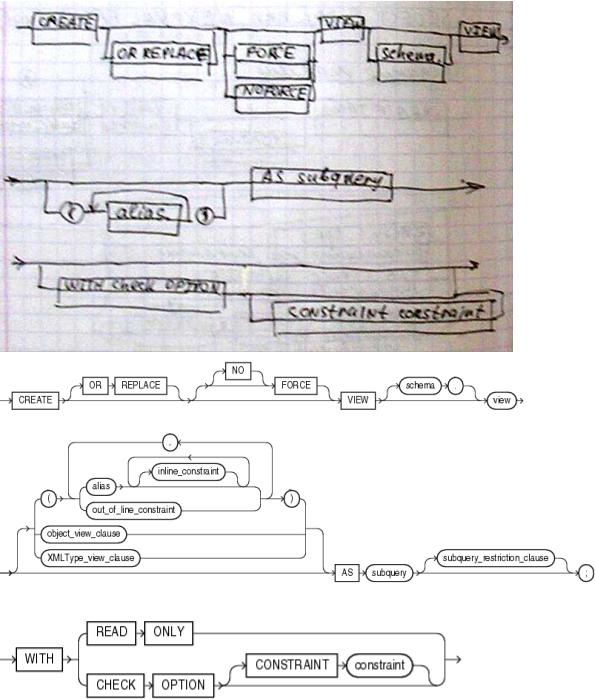 CREATE OR REPLACE FORCE NOFORCE VIEW schema. VIEW
( alias ) AS subquery
WITH check OPTION CONSTRAINT constraint
CREATE OR REPLACE NO FORCE VIEW schema . view
( alias inline_constraint , out_of_line_constraint )
object_view_clause
XMLType_view_clause
AS subquery subquery_restriction_clause ;
WITH READ ONLY
CHECK OPTION CONSTRAINT constraint